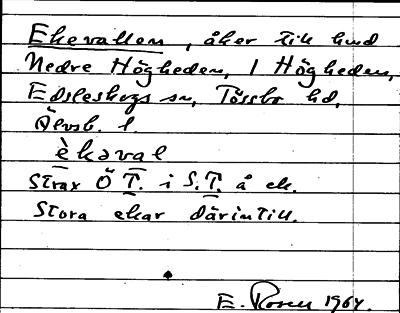 Ekevallen, åker till hmd
Nedre Högheden, 1 Högheden,
Edsleskogs sn, Tössbo hd,
Älvsb. l
èkaval
Strax Ö T. i S.T. å ek.
Stora ekar därintill.
E. Rosen 1964.